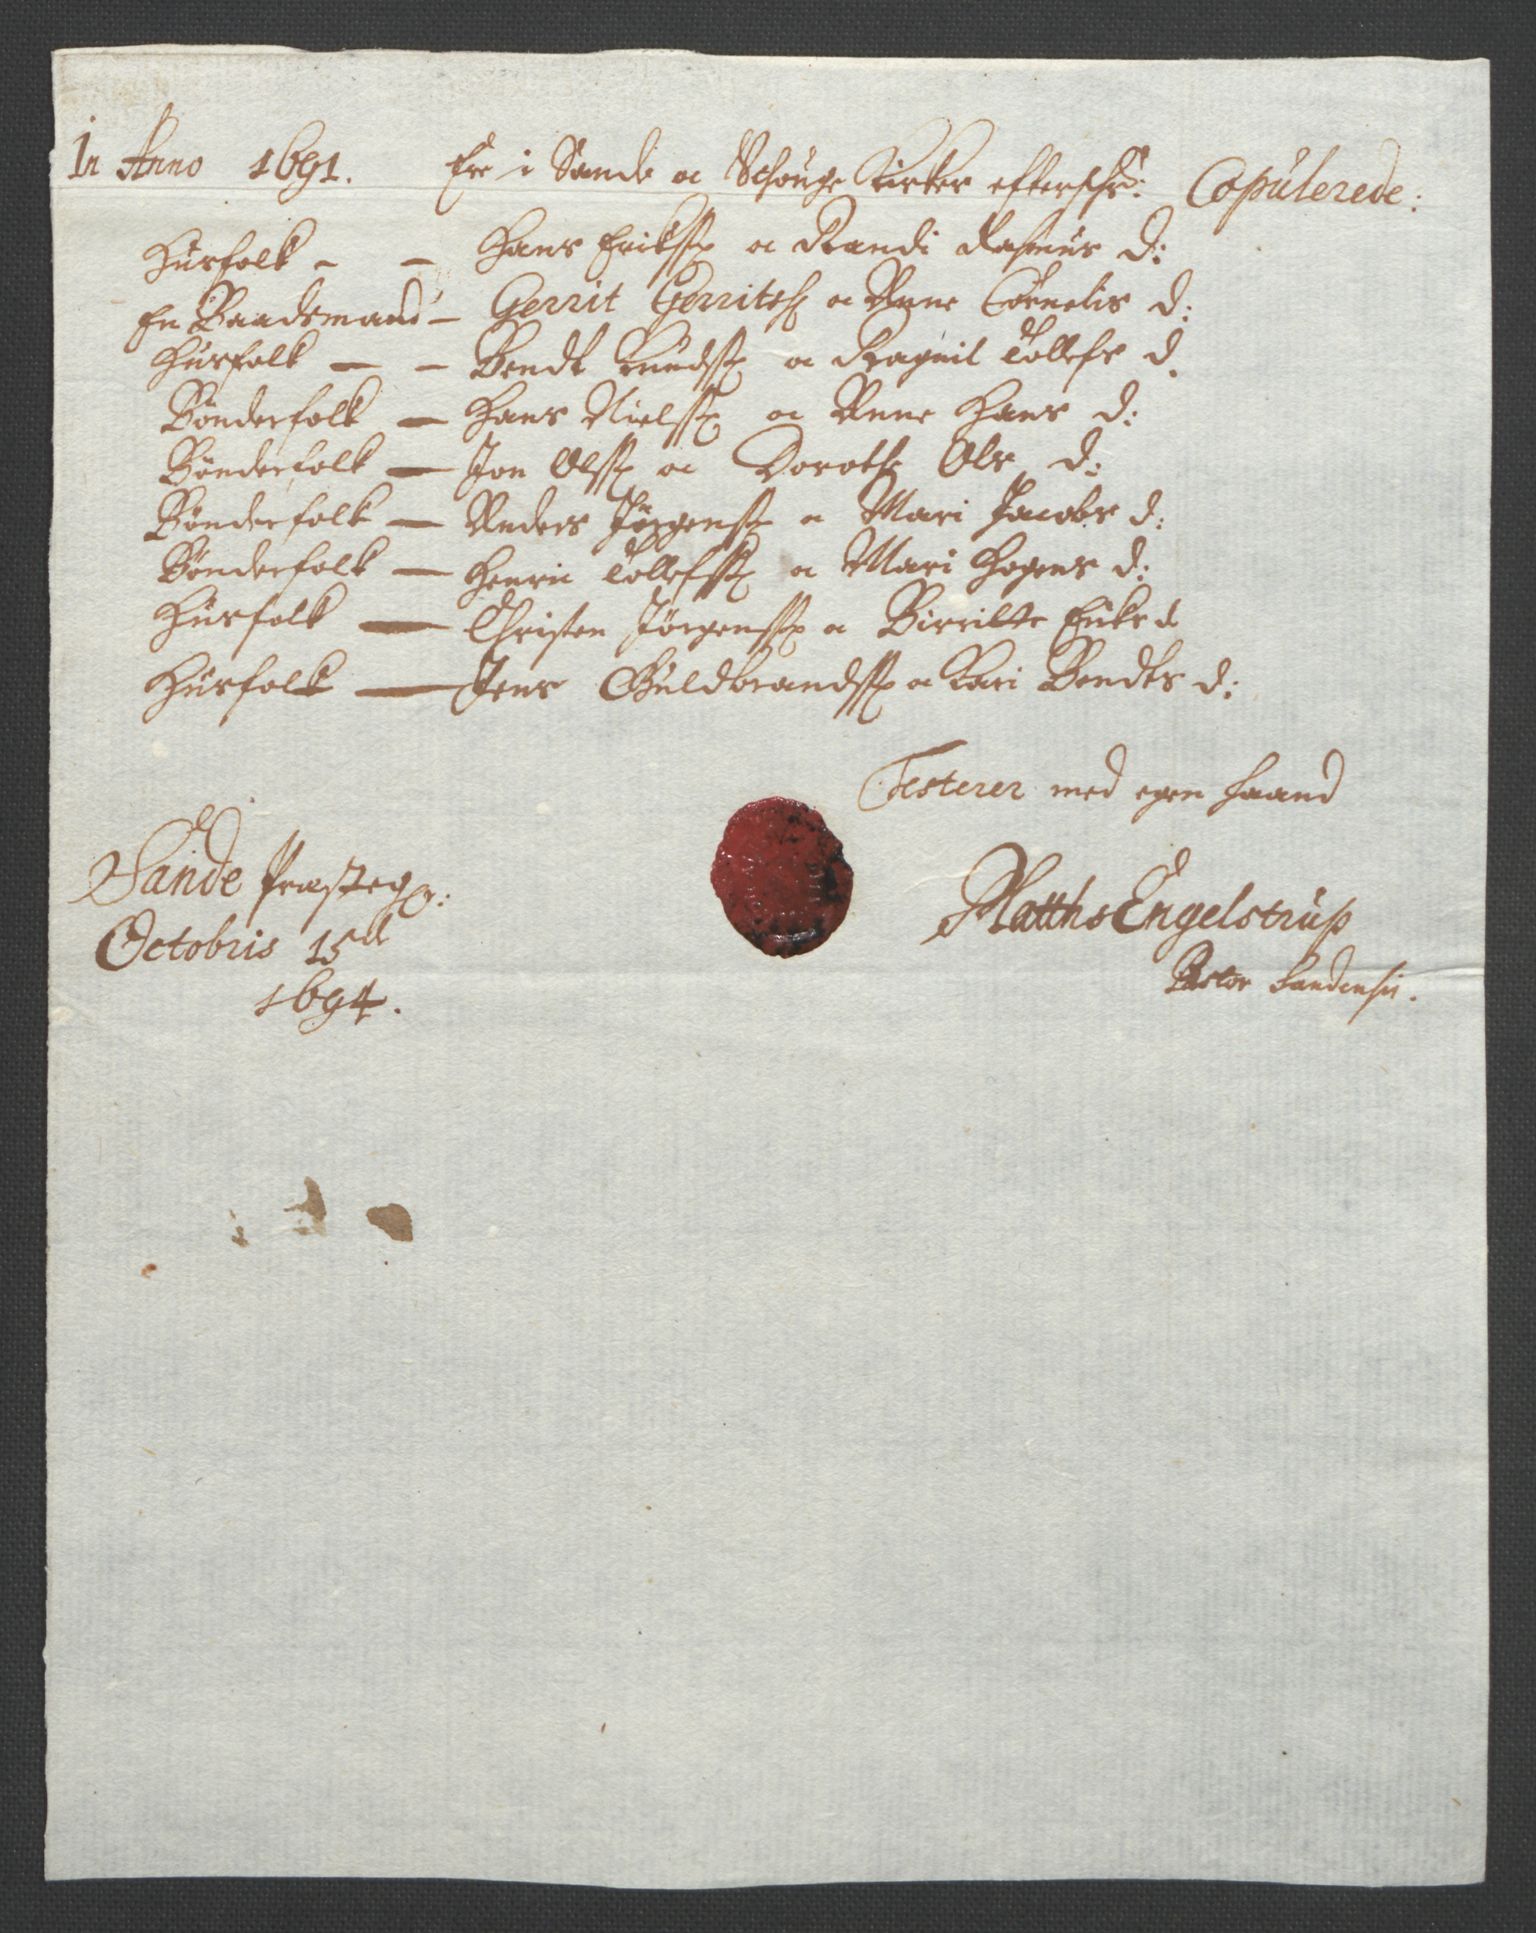 In Anno 1691. Ere i Sande oc Schouge Kirker efterschr: Copulerede:
Husfolk - - Hans Erikss: oc Randi Rasmus D:
En Baadsmand - Gerrit Gerritss: oc Anne Cornelis D:
Husfolk - - Bendt Knudss: oc Ragnil Tollefs D.
Bønderfolk - Hans Nielss: oc Anne Hans D:
Bønderfolk - Jon Olss: oc Dorothe Ols D:
Bønderfolk - Anders Jørgenss: oc Mari Jacobs D:
Bønderfolk - Henric Tollefss: oc Mari Hogens D:
Husfolk - Christen Jørgenss: oc Birritte Eriks d
Husfolk - Jens Guldbrandss: oc Kari Bendts D:
Testerer med egen haand
Sande Præsteg:
Octobris 15d
1694.
Matths Engelstrup
Pastor Sandensis.